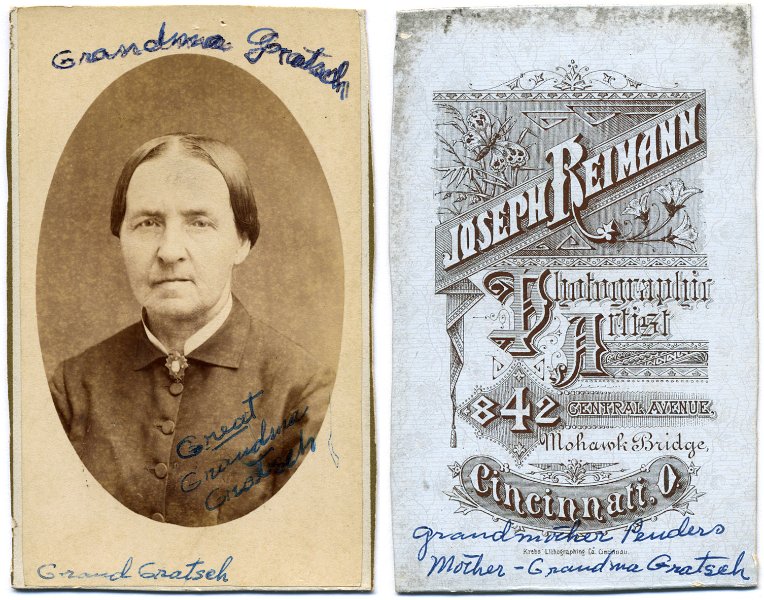 Grandma Gratsch
Great
Grandma
Gratsch
Grand Gratsch
JOSEPH REIMANN
Photographic
Artist
842 CENTRAL AVENUE,
Mohawk Bridge,
Cincinnati, O.
Krebs Lithographing Co. Cincinnati.
Grandmother Penders
Mother - Grandma Gratsch